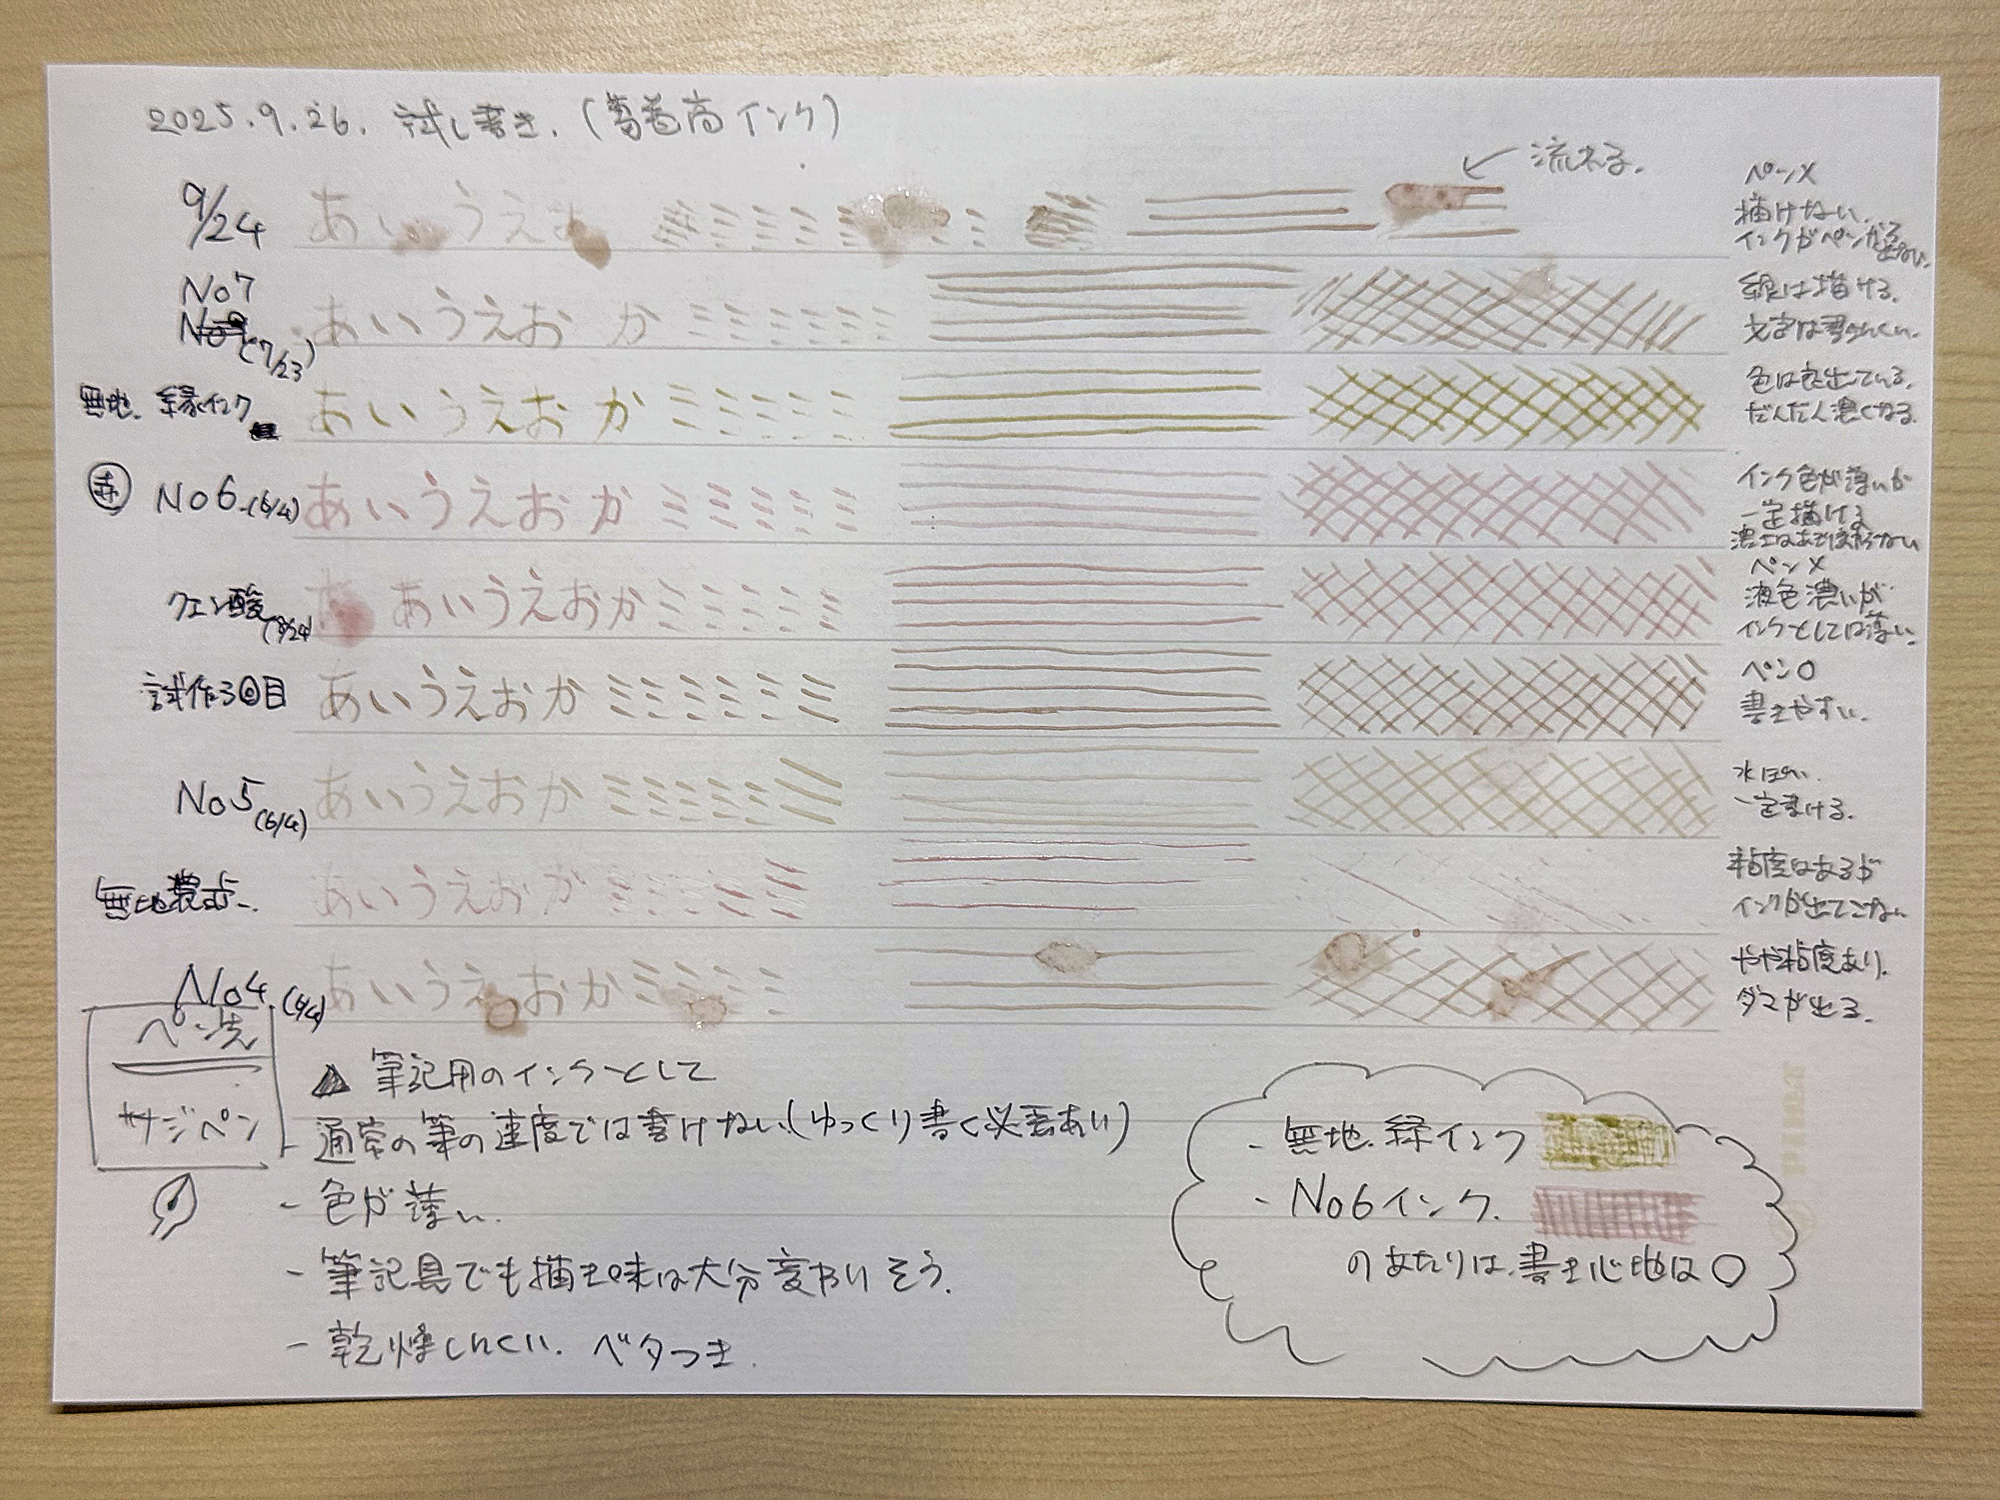 2025.9.26. 試し書き.(葛巻高インク)
流れる.
9/24 あいうえお
ペン×
描けない.
インクがペンから出ない.
No7
(7/23) あいうえおか
線は描ける.
文字は書きにくい.
無地. 緑インク あいうえおか
色は良出ている.
だんだん濃くなる.
赤 No6.(6/4) あいうえおか
インク色が薄いが
一定描ける
クエン酸 あいうえおか
ペン×
液色濃いが
インクとしては薄い.
試作3回目 あいうえおか
ペン〇
書きやすい.
No5(6/4) あいうえおか
水ぽい.
一定書ける.
無地 あいうえおか
粘度はあるが
インクが出てこない
No4.(6/4) あいうえおか
やや粘度あり.
ダマが出る.
ペン先
サジペン
▲ 筆記用のインクとして
- 通常の筆の速度では書けない(ゆっくり書く必要あり)
- 色が薄い.
- 筆記具でも描き味は大分変わりそう.
- 乾燥しにくい. ベタつき.
- 無地. 緑インク
- No6インク.
のあたりは、書き心地は〇